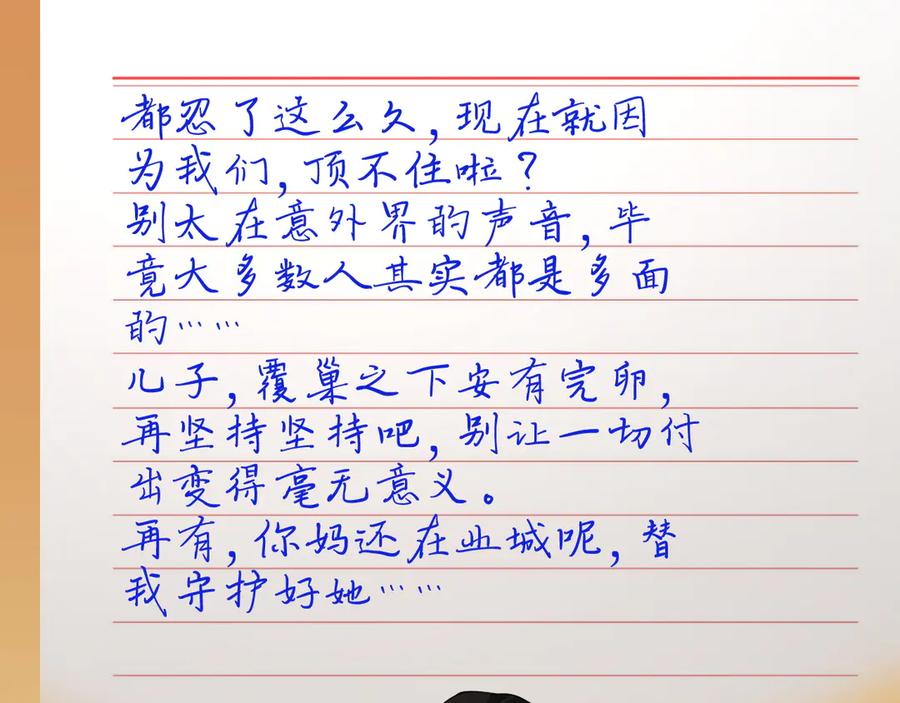 都忍了这么久,现在就因
为我们,顶不住啦?
别太在意外界的声音,毕
竟大多数人其实都是多面
的……
儿子,覆巢之下安有完卵,
再坚持坚持吧,别让一切付
出变得毫无意义。
再有,你妈还在业城呢,替
我守护好她……